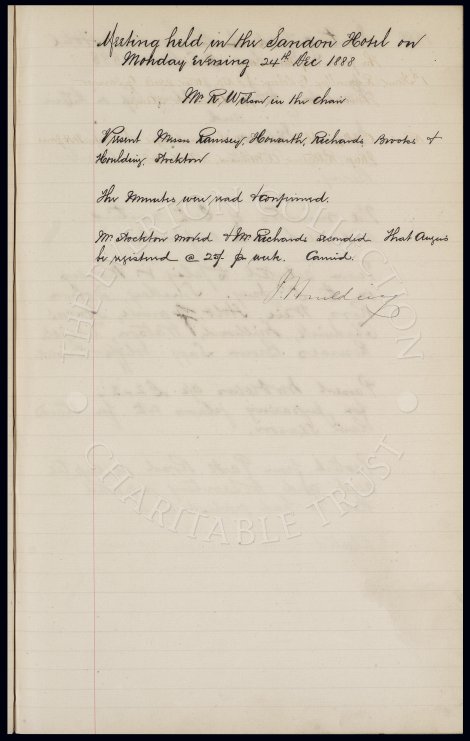 Meeting held in the Sandon Hotel on
Monday Evening 24th Dec 1888
Mr R. Wilson in the chair
Present Messrs Ramsey, Howarth, Richards, Brooks &
Houlding, Stockton
The Minutes were read & confirmed.
Mr Stockton moved & Mr Richards seconded That Angus
be registered @ per week. Carried.
J. Houlding
THE EVERTON COLLECTION
CHARITABLE TRUST